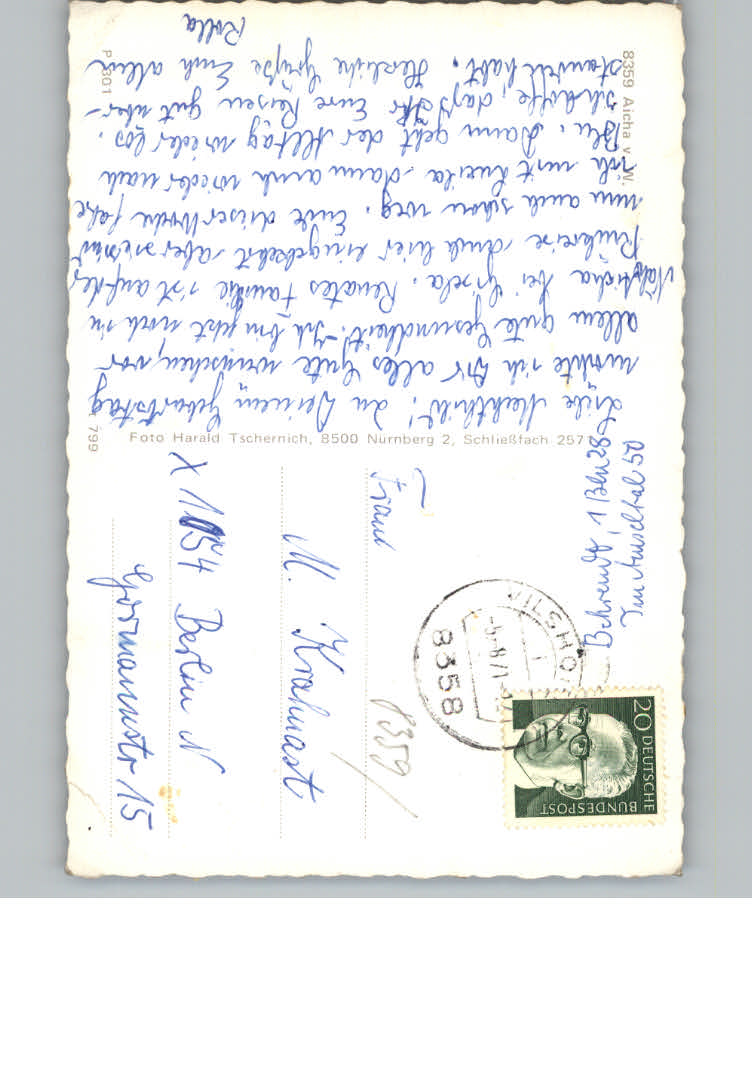 8359 Aicha v. W.
P 301
799
Foto Harald Tschernich, 8500 Nürnberg 2, Schließfach 2571
Liebe Mechthild! Zu Deinem Geburtstag
möchte ich Dir alles Gute wünschen, vor
allem gute Gesundheit. Ich bin jetzt noch in
bei Gisela. Renates Familie ist auf der
Rückreise auch hier eingekehrt, aber sie sind
nun auch schon weg. Ende dieser Woche fahre
ich mit dann auch wieder nach
Bln. Dann geht der Alltag wieder los.
Ich hoffe, dass Ihr Eure Reisen gut über-
standen habt. Herzliche Grüße Euch allen
Behrendt, 1 Bln 28
Im Amseltal 50
Frau
M. Krahnast
X 1054 Berlin N
Gormannstr 15
8359
VILSHOFEN
8358
20
DEUTSCHE
BUNDESPOST